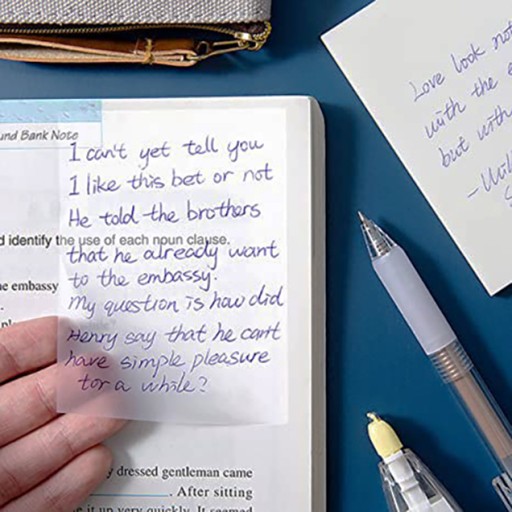 und Bank Note
I can't yet tell you
I like this bet or not
He told the brothers
d identify the use of each noun clause.
that he already want
e embassy
to the embassy.
My question is how did
Henry say that he can't
have simple pleasure
for a while?
dressed gentleman came
. After sitting
e it up very quickly. It seemed
Love look not
with the e
but with